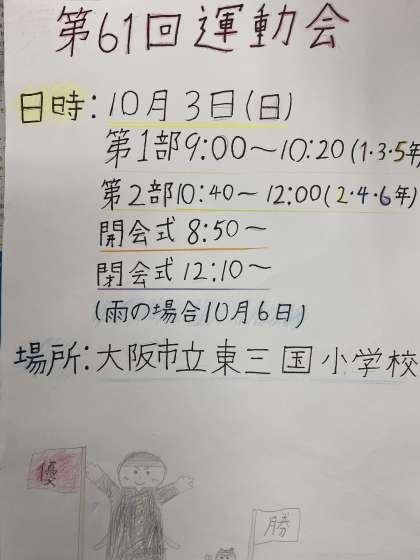 第61回運動会
日時:10月3日(日)
第1部9:00〜10:20(1・3・5年
第2部10:40〜12:00(2・4・6年)
開会式8:50〜
閉会式12:10〜
(雨の場合10月6日)
場所:大阪市立東三国小学校
優
勝